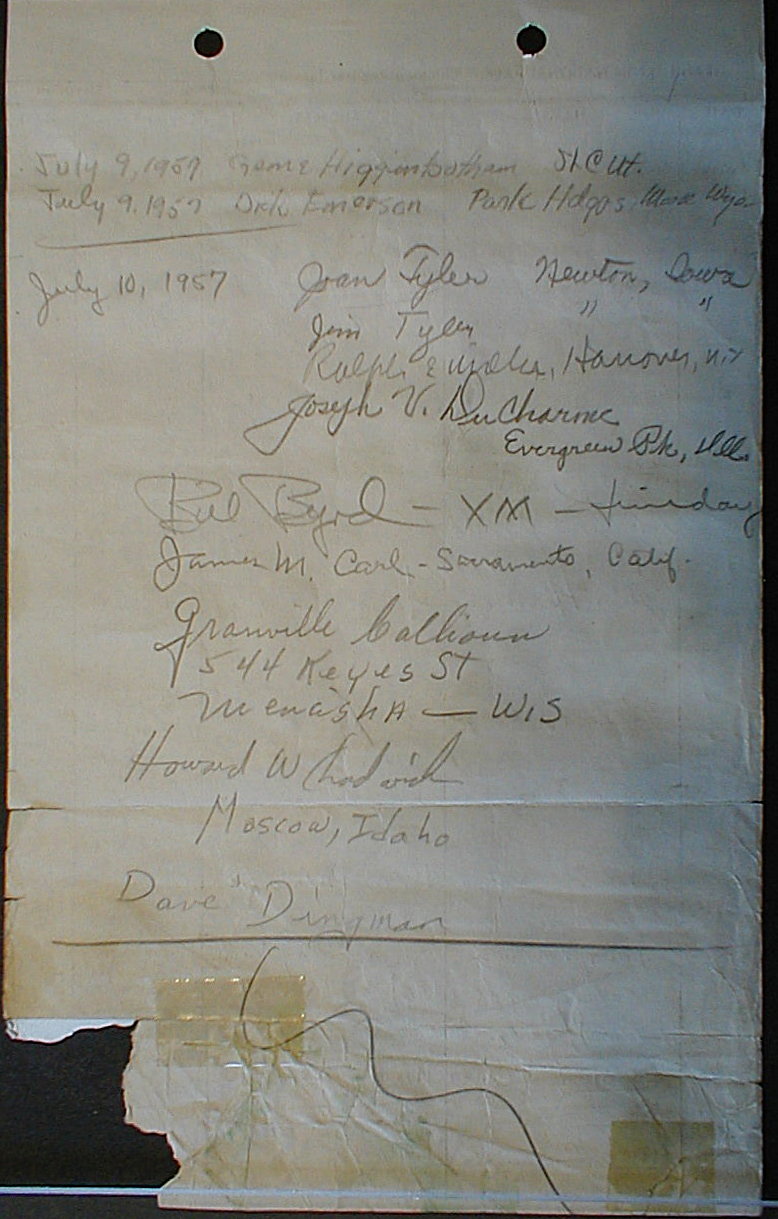 July 9, 1957 Gene Higginbotham SLC Ut.
July 9, 1957 Dick Emerson Park Hdqqs Moose Wyo
July 10, 1957 Joan Tyler Newton, Iowa
Jim Tyler " "
Ralph E Hanover, N.Y
Joseph V. DuCharme
Evergreen Pk, Ill.
Bill Byrd - XM -
James M. Carl - Sacramento, Calif.
Granville Calhoun
544 Keyes St
MenashA — WIS
Howard W Chadwick
Moscow, Idaho
"Dave" Dingman